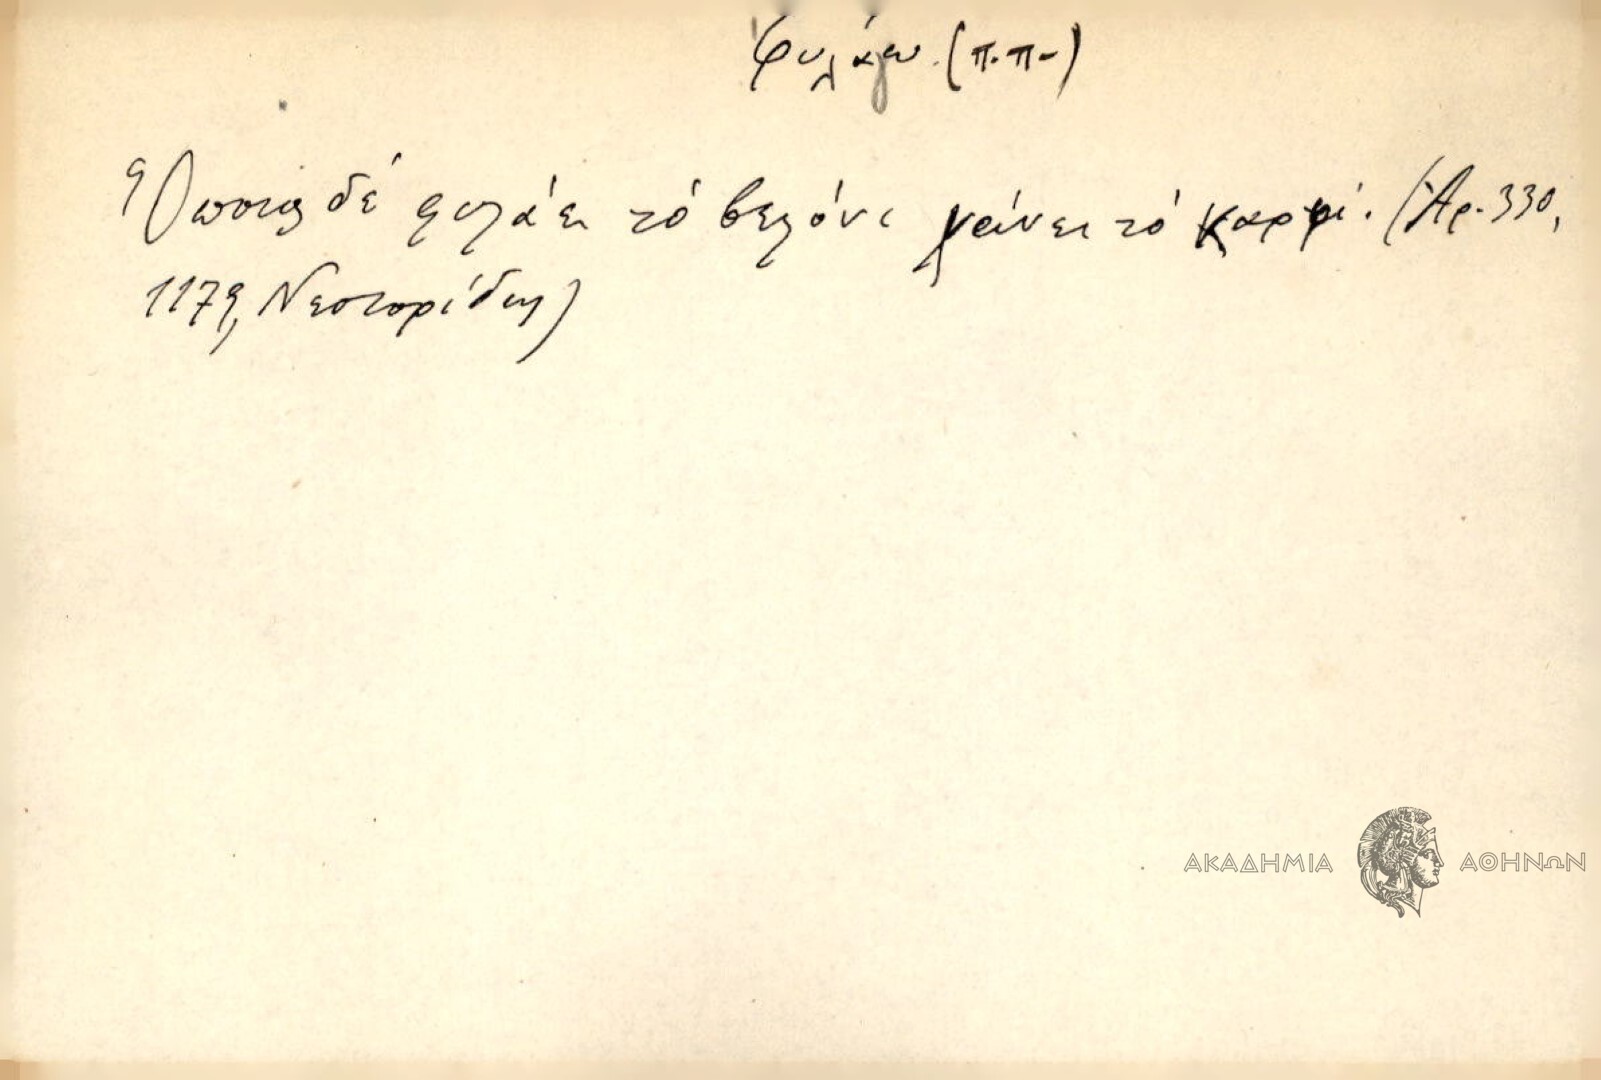 φυλάγω (π.π-)
Ὅποιος δέ φυλάει τό βελόνι χάνει τό καρφί. (Ἀρ. 330,
1179, Νεστορίδης)
ΑΚΑΔΗΜΙΑ ΑΘΗΝΩΝ